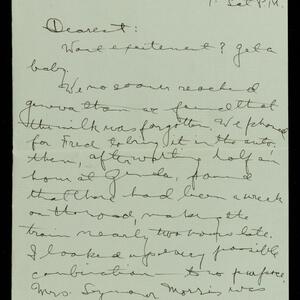 Sat P.M.
Dearest:
Want excitement? Get a
baby.
We no sooner reached
Geneva than we found that
the milk was forgotten. We phoned
for Fred to bring it in the auto,
then, after waiting half an
hour at Geneva, found
that there had been a wreck
on the road, making the
train nearly two hours late.
I looked up every possible
combination — to no purpose.
Mrs. Seymour Morris was